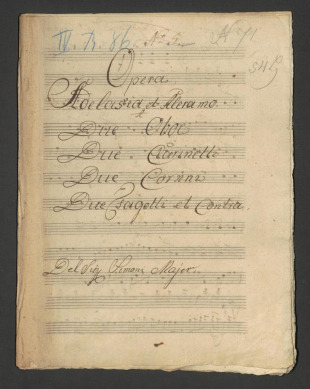 IV. B. 86. No. 5.
N 71
549
Opera
Adelasia et Aleramo
Due Oboe
Due Clarinetti
Due Cornni
Due Fagotti et Contra
Del Sig Simone Majer